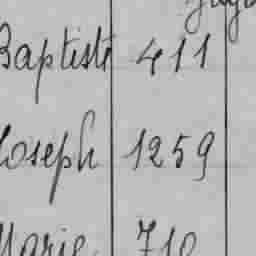 Baptiste 411
Joseph 1259
Marie 710